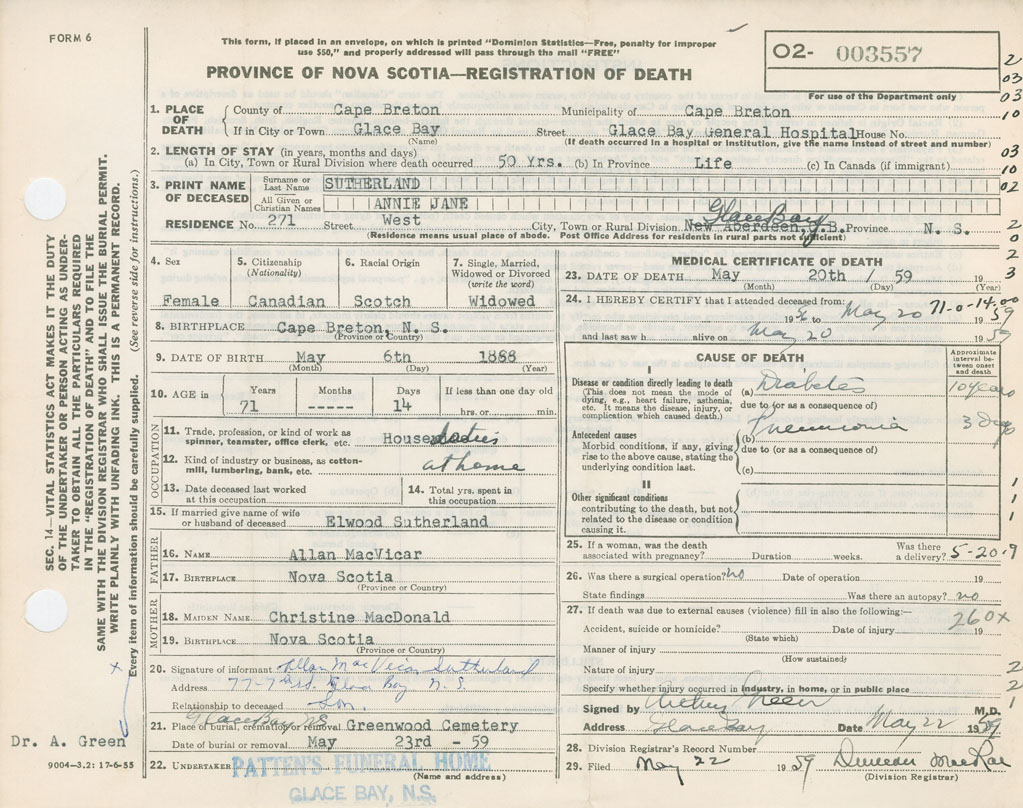 FORM 6
This form, if placed in an envelope, on which is printed "Dominion Statistics—Free, penalty for improper
use $50," and properly addressed will pass through the mail "FREE"
PROVINCE OF NOVA SCOTIA—REGISTRATION OF DEATH
02- 003557
For use of the Department only
2
03
03
10
03
10
02
2
0
2
3
SEC. 14—VITAL STATISTICS ACT MAKES IT THE DUTY
OF THE UNDERTAKER OR PERSON ACTING AS UNDER-
TAKER TO OBTAIN ALL THE PARTICULARS REQUIRED
IN THE "REGISTRATION OF DEATH" AND TO FILE THE
SAME WITH THE DIVISION REGISTRAR WHO SHALL ISSUE THE BURIAL PERMIT.
WRITE PLAINLY WITH UNFADING INK. THIS IS A PERMANENT RECORD.
Every item of information should be carefully supplied. (See reverse side for instructions.)
1. PLACE OF DEATH
County of Cape Breton Municipality of Cape Breton
If in City or Town Glace Bay Street Glace Bay General Hospital House No.
(Name) (If death occurred in a hospital or institution, give the name instead of street and number)
2. LENGTH OF STAY (in years, months and days)
(a) In City, Town or Rural Division where death occurred 50 Yrs. (b) In Province Life (c) In Canada (if immigrant)
3. PRINT NAME OF DECEASED
Surname or Last Name SUTHERLAND
All Given or Christian Names ANNIE JANE
Glace Bay
RESIDENCE No. 271 Street West City, Town or Rural Division New Aberdeen, G.B. Province N. S.
(Residence means usual place of abode. Post Office Address for residents in rural parts not sufficient)
4. Sex
Female
5. Citizenship
(Nationality)
Canadian
6. Racial Origin
Scotch
7. Single, Married,
Widowed or Divorced
(write the word)
Widowed
8. BIRTHPLACE Cape Breton, N. S.
(Province or Country)
9. DATE OF BIRTH May 6th 1888
(Month) (Day) (Year)
10. AGE in
Years Months Days If less than one day old
71 ----- 14 hrs. or min.
OCCUPATION
11. Trade, profession, or kind of work as
spinner, teamster, office clerk, etc. House duties
12. Kind of industry or business, as cotton-
mill, lumbering, bank, etc. at home
13. Date deceased last worked
at this occupation
14. Total yrs. spent in
this occupation
15. If married give name of wife
or husband of deceased Elwood Sutherland
FATHER
16. NAME Allan MacVicar
17. BIRTHPLACE Nova Scotia
(Province or Country)
MOTHER
18. MAIDEN NAME Christine MacDonald
19. BIRTHPLACE Nova Scotia
(Province or Country)
20. Signature of informant Allan MacVicar Sutherland
Address 77-7 Glace Bay N. S.
Relationship to deceased Son.
Glace Bay NS
21. Place of burial, cremation or removal Greenwood Cemetery
Date of burial or removal May 23rd - 59
22. UNDERTAKER PATTEN'S FUNERAL HOME
(Name and address)
GLACE BAY, N.S.
x
Dr. A. Green
9004—3.2: 17-6-55
MEDICAL CERTIFICATE OF DEATH
23. DATE OF DEATH May 20th / 59 19
(Month) (Day) (Year)
24. I HEREBY CERTIFY that I attended deceased from: 71-0-14-00
19 to May 20 1959
and last saw h alive on May 20 1959
CAUSE OF DEATH
Approximate
interval be-
tween onset
and death
I
Disease or condition directly leading to death
(This does not mean the mode of
dying, e.g., heart failure, asthenia,
etc. It means the disease, injury, or
complication which caused death.)
(a) Diabetes 10 years
due to (or as a consequence of)
Antecedent causes
Morbid conditions, if any, giving
rise to the above cause, stating the
underlying condition last.
(b) Pneumonia 3 Days
due to (or as a consequence of)
(c)
II
Other significant conditions
contributing to the death, but not
related to the disease or condition
causing it.
1
1
1
25. If a woman, was the death
associated with pregnancy? Duration weeks. Was there
a delivery? 5-20-9
26. Was there a surgical operation? no Date of operation 19
State findings Was there an autopsy? no
27. If death was due to external causes (violence) fill in also the following:—
260X
Accident, suicide or homicide? Date of injury 19
(State which)
Manner of injury
(How sustained)
Nature of injury 2
Specify whether injury occurred in industry, in home, or in public place 2
Signed by Arthur Green M.D. 1
Address Glace Bay Date May 22 1959
28. Division Registrar's Record Number
29. Filed May 22 1959 Duncan MacRae
(Division Registrar)